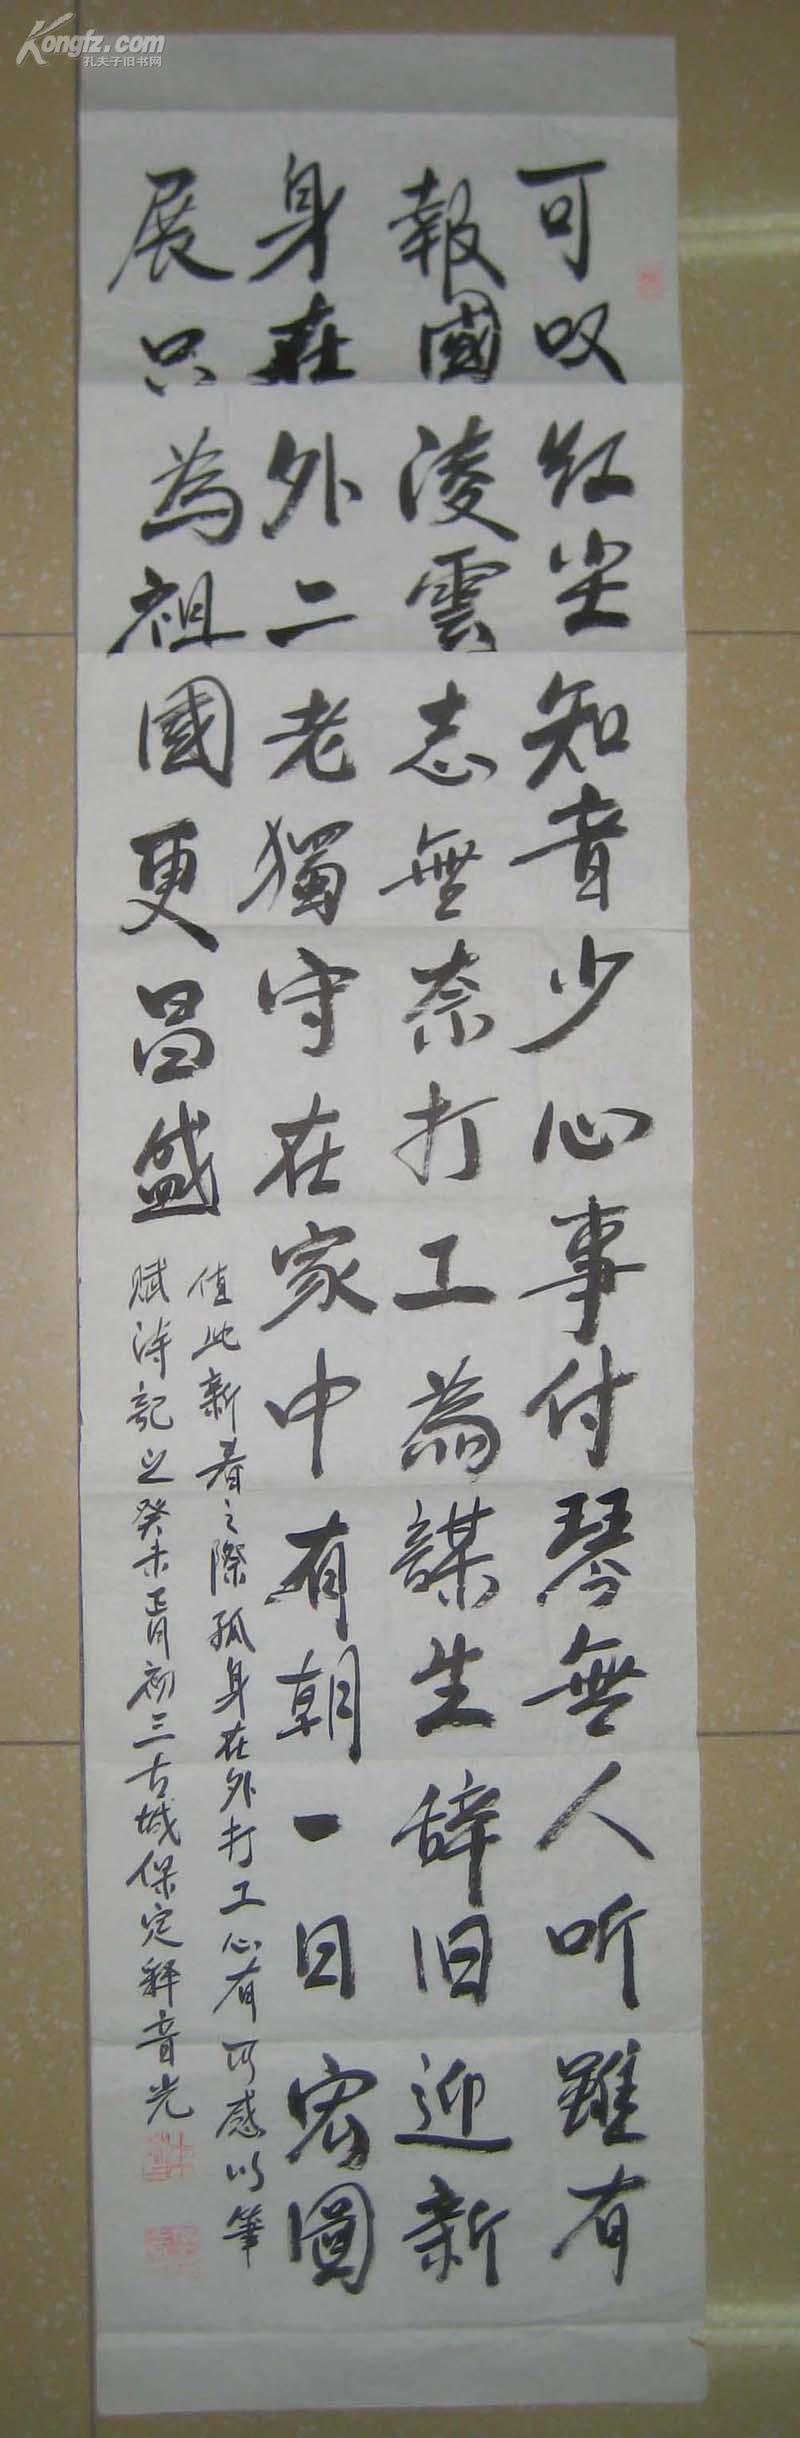 Kongfz.com
孔夫子旧书网
可叹红尘知音少心事付琴無人听雖有
報國凌雲志無奈打工為謀生辞旧迎新
身在外二老獨守在家中有朝一日宏圖
展只為祖國更昌盛
值此新春之際孤身在外打工心有所感以筆
赋诗記之癸未正月初三古城保定釋音光